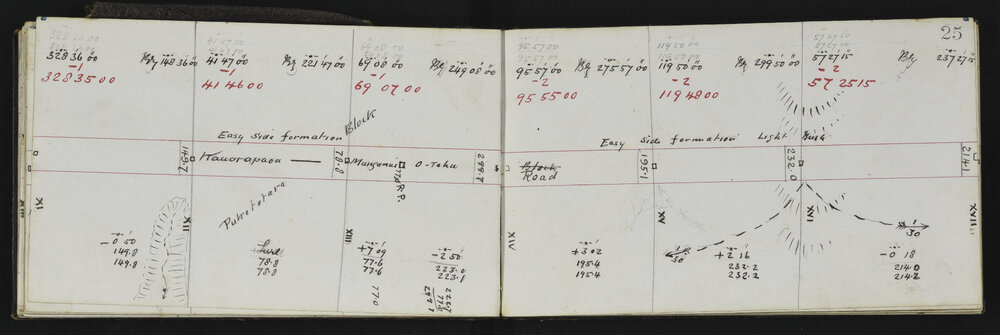 25
328 36 00
148 36 00
41 47 00
221 47 00
69 08 00
249 08 00
-1
328 35 00
-1
41 46 00
-1
69 07 00
95 57 00
275 57 00
119 50 00
299 50 00
57 27 15
237 27 15
-2
95 55 00
-2
119 48 00
-2
57 25 15
Easy side formation
Block
149.7
78.8
Mangamai
O-Teku
299.7
R.P.
XI
XII
XIII
Puketotara
-0 50
149.8
149.8
Level
78.8
78.8
+7 09
77.6
77.6
77.0
-2 50
223.0
223.1
Easy Side formation Light Bush
Block
Road
195.1
232.0
214.1
XIV
XV
XVI
XVII
1/30
1/30
+3 02
195.4
195.4
+2 16
232.2
232.2
-0 18
214.0
214.2